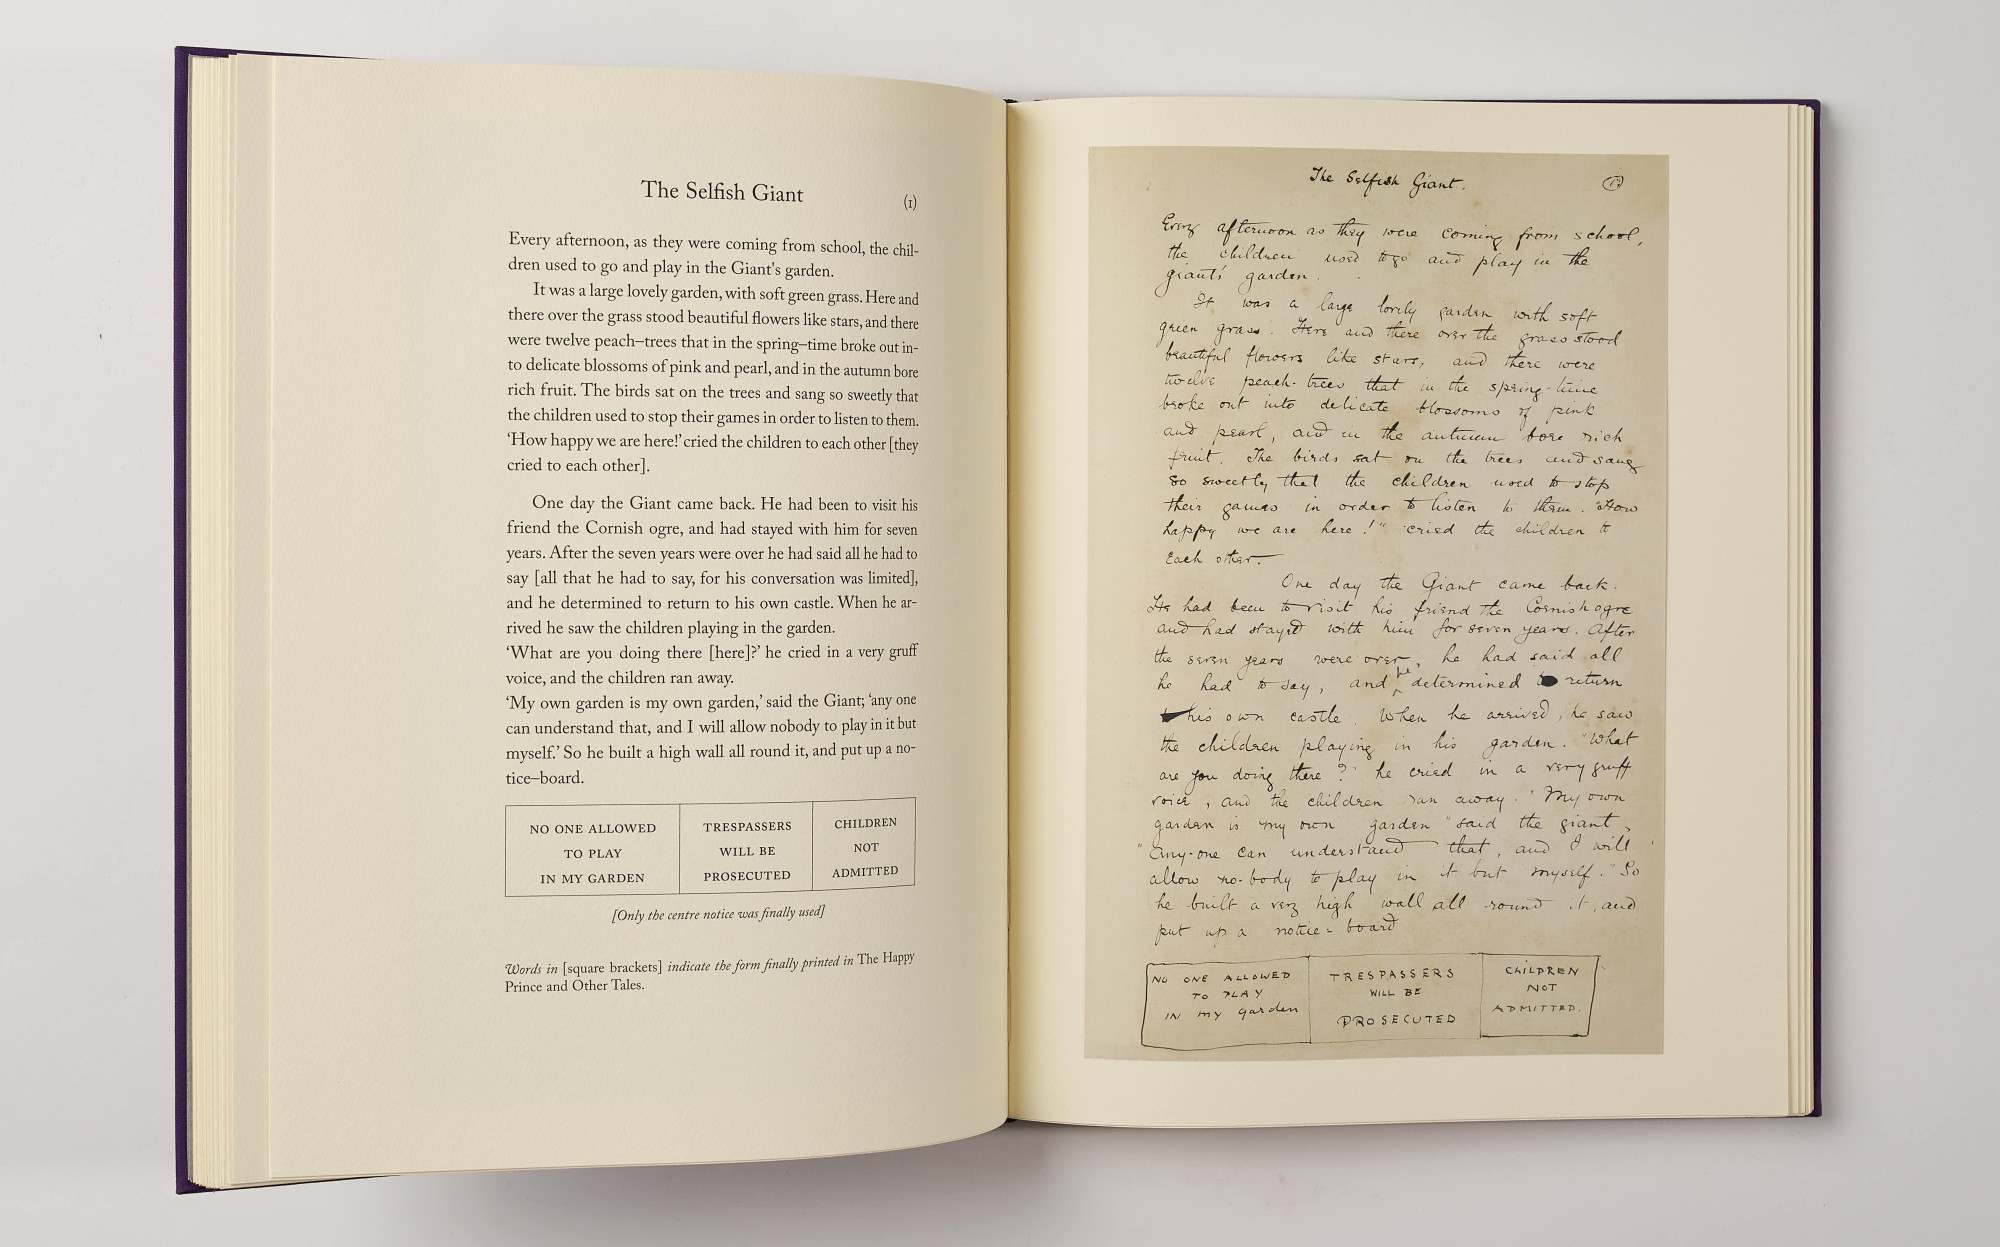 The Selfish Giant
(1)
Every afternoon, as they were coming from school, the chil-
dren used to go and play in the Giant's garden.
It was a large lovely garden, with soft green grass. Here and
there over the grass stood beautiful flowers like stars, and there
were twelve peach–trees that in the spring–time broke out in-
to delicate blossoms of pink and pearl, and in the autumn bore
rich fruit. The birds sat on the trees and sang so sweetly that
the children used to stop their games in order to listen to them.
‘How happy we are here!’ cried the children to each other [they
cried to each other].
One day the Giant came back. He had been to visit his
friend the Cornish ogre, and had stayed with him for seven
years. After the seven years were over he had said all he had to
say [all that he had to say, for his conversation was limited],
and he determined to return to his own castle. When he ar-
rived he saw the children playing in the garden.
‘What are you doing there [here]?’ he cried in a very gruff
voice, and the children ran away.
‘My own garden is my own garden,’ said the Giant; ‘any one
can understand that, and I will allow nobody to play in it but
myself.’ So he built a high wall all round it, and put up a no-
tice–board.
NO ONE ALLOWED
TO PLAY
IN MY GARDEN
TRESPASSERS
WILL BE
PROSECUTED
CHILDREN
NOT
ADMITTED
[Only the centre notice was finally used]
Words in [square brackets] indicate the form finally printed in The Happy
Prince and Other Tales.
The Selfish Giant.
Every afternoon as they were coming from school,
the children used to go and play in the
giant's garden.
It was a large lovely garden with soft
green grass. Here and there over the grass stood
beautiful flowers like stars, and there were
twelve peach-trees that in the spring-time
broke out into delicate blossoms of pink
and pearl, and in the autumn bore rich
fruit. The birds sat on the trees and sang
so sweetly that the children used to stop
their games in order to listen to them. "How
happy we are here!" cried the children to
each other.
One day the Giant came back.
He had been to visit his friend the Cornish ogre
and had stayed with him for seven years. After
the seven years were over, he had said all
he had to say, and he determined to return
his own castle. When he arrived, he saw
the children playing in his garden. "What
are you doing there?" he cried in a very gruff
voice, and the children ran away. "My own
garden is my own garden" said the giant,
"Any-one can understand that, and I will
allow no-body to play in it but myself." So
he built a very high wall all round it, and
put up a notice=board
NO ONE ALLOWED
TO PLAY
IN MY garden
TRESPASSERS
WILL BE
PROSECUTED
CHILDREN
NOT
ADMITTED.